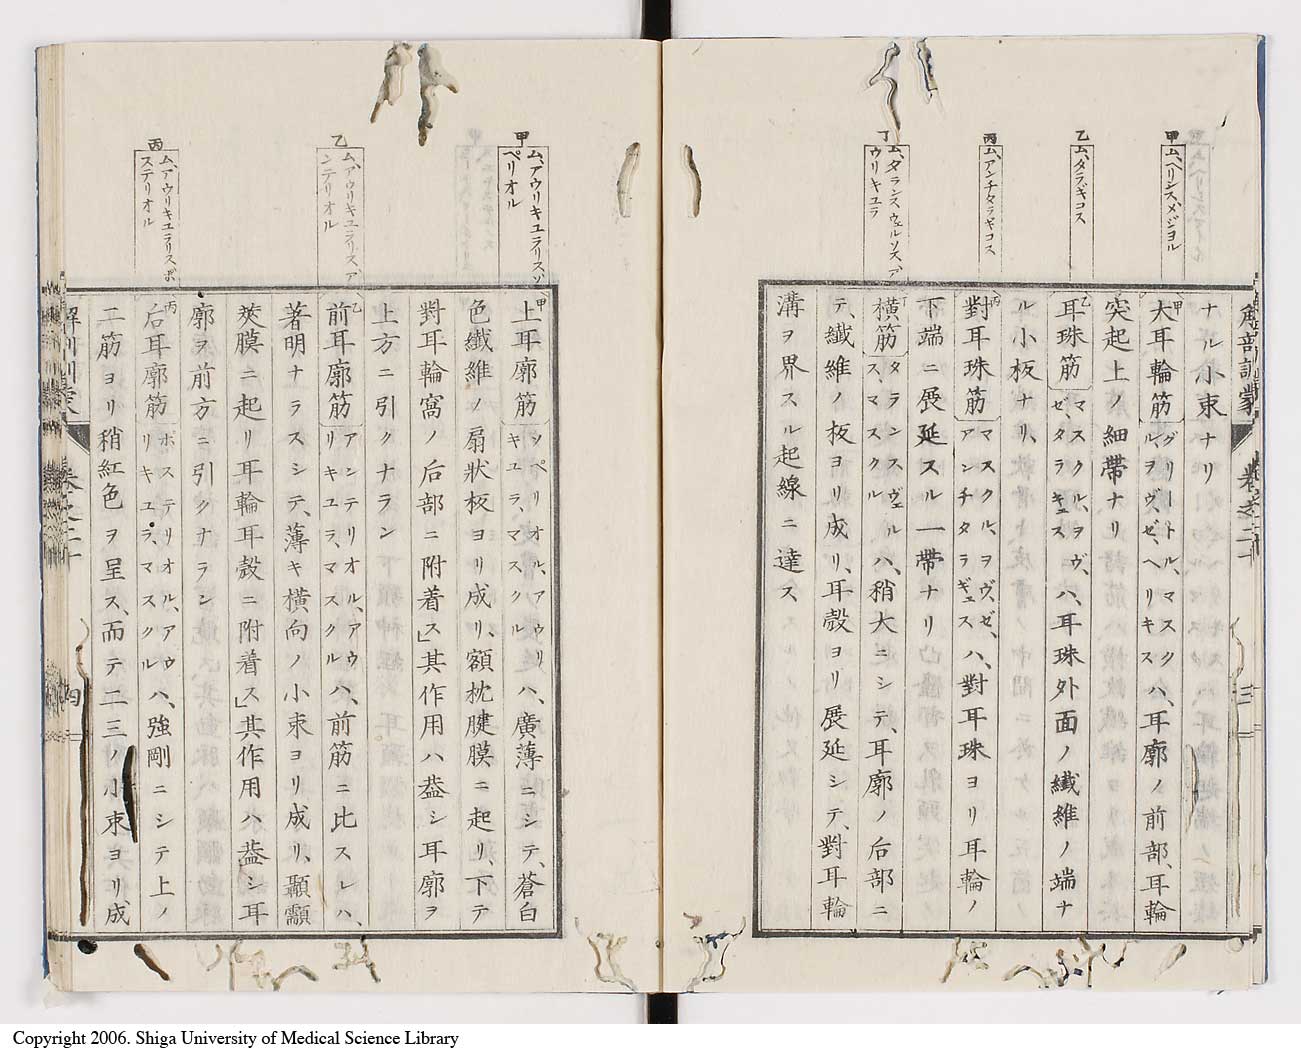 甲
ム、ヘリシス、メジヨル
乙
ム、タラギコス
丙
ム、アンチタラギコス
丁
ム、タランスウェルソス、ア
ウリキユラ
解剖訓蒙
卷之二十
三
ナル小束ナリ
甲大耳輪筋グリートル、マスク
ル、ヲヴ、ゼ、ヘリキスハ、耳廓ノ前部、耳輪
突起上ノ細帶ナリ
乙耳珠筋マスクル、ヲヴ、
ゼ、タラギュスハ、耳珠外面ノ纎維ノ端ナ
ル小板ナリ、
丙對耳珠筋マスクル、ヲヴ、ゼ、
アンチタラギュスハ、對耳珠ヨリ耳輪ノ
下端ニ展延スル一帶ナリ
丁横筋タランスヴェル
ス、マスクルハ、稍大ニシテ、耳廓ノ后部ニ
テ、纎維ノ板ヨリ成リ、耳殻ヨリ展延シテ、對耳輪
溝ヲ界スル起線ニ達ス
甲
ム、アウリキユラリスソ
ペリオル
乙
ム、アウリキユラリス、ア
ンテリオル
丙
ム、アウリキユラリスポ
ステリオル
甲上耳廓筋ソペリオル、アウリ
キユラ、マスクルハ、廣薄ニシテ、蒼白
色纎維ノ扇状板ヨリ成リ、額枕腱膜ニ起リ、下テ
對耳輪窩ノ后部ニ附着ス」其作用ハ葢シ耳廓ヲ
上方ニ引クナラン
乙前耳廓筋アンテリオル、アウ
リキユラ、マスクルハ、前筋ニ比スレハ、
著明ナラスシテ、薄キ横向ノ小束ヨリ成リ、顳顬
筴膜ニ起リ耳輪耳殻ニ附着ス」其作用ハ葢シ耳
廓ヲ前方ニ引クナラン
丙后耳廓筋ポステリオル、アウ
リキユラ、マスクルハ、強剛ニシテ上ノ
二筋ヨリ稍紅色ヲ呈ス、而テ二三ノ小束ヨリ成
解剖訓蒙
卷之二十
四
Copyright 2006. Shiga University of Medical Science Library